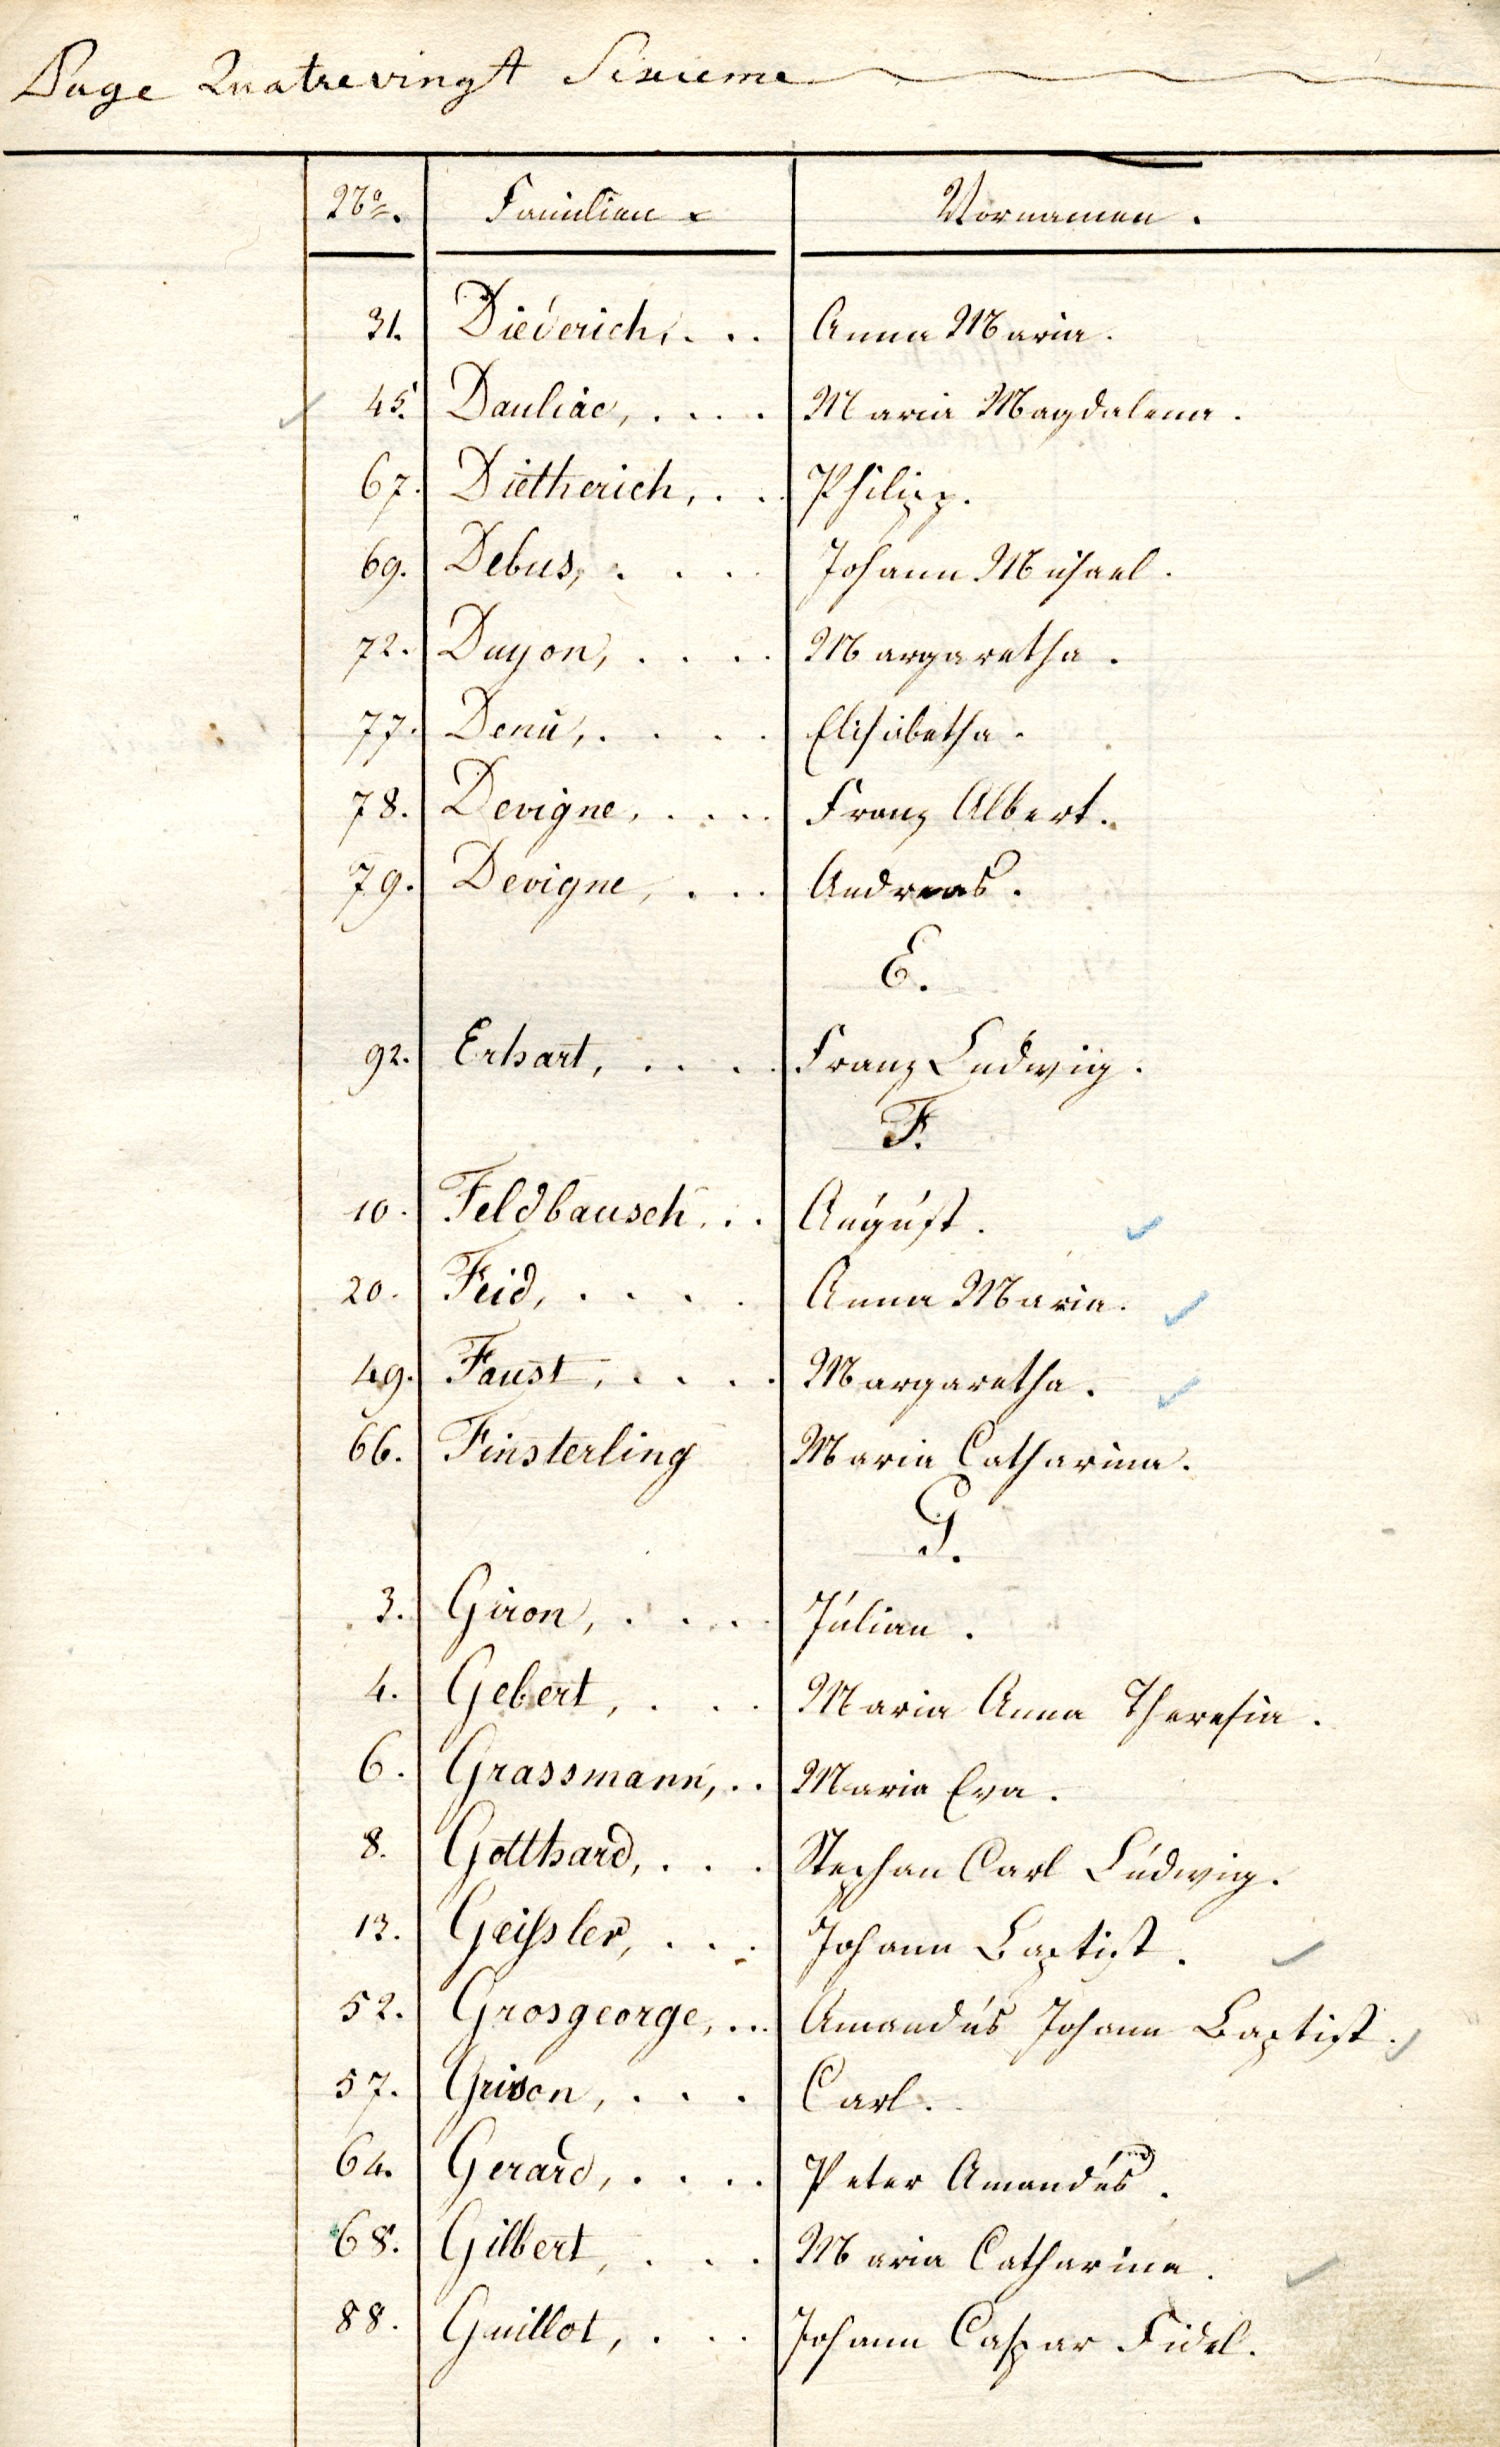 Page Quatrevingt Sixieme
No. Familien. Vornamen.
31. Diederich, . . . Anna Maria.
45. Dauliac, . . . . Maria Magdalena.
67. Dietherich, . . Philipp.
69. Debus, . . . . Johann Michael.
72. Duyon, . . . . Margaretha.
77. Denu, . . . . Elisabetha.
78. Devigne, . . . . Franz Albert.
79. Devigne, . . . Andreas.
E.
92. Erhart, . . . . Franz Ludwig.
F.
10. Feldbausch . . . August.
20. Feid, . . . . Anna Maria.
49. Faust, . . . . Margaretha.
66. Finsterling Maria Catharina.
G.
3. Giron, . . . . Julian.
4. Gebert, . . . Maria Anna Theresia.
6. Grassmann, . . Maria Eva.
8. Gotthard, . . . Stephan Carl Ludwig.
13. Geißler, . . . Johann Baptist.
52. Grosgeorge, . . . Amandus Johann Baptist.
57. Grison, . . . Carl.
64. Gerard, . . . . Peter Amandus.
68. Gilbert, . . . Maria Catharina.
88. Guillot, . . . Johann Caspar Fidel.